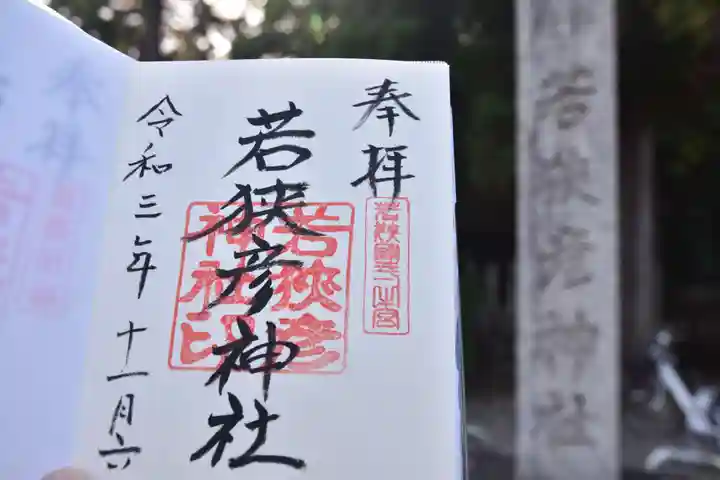 奉拝
若狭國一之宮
若狭彦神社
若狭彦
神社印
令和三年十一月六
若狭彦神社